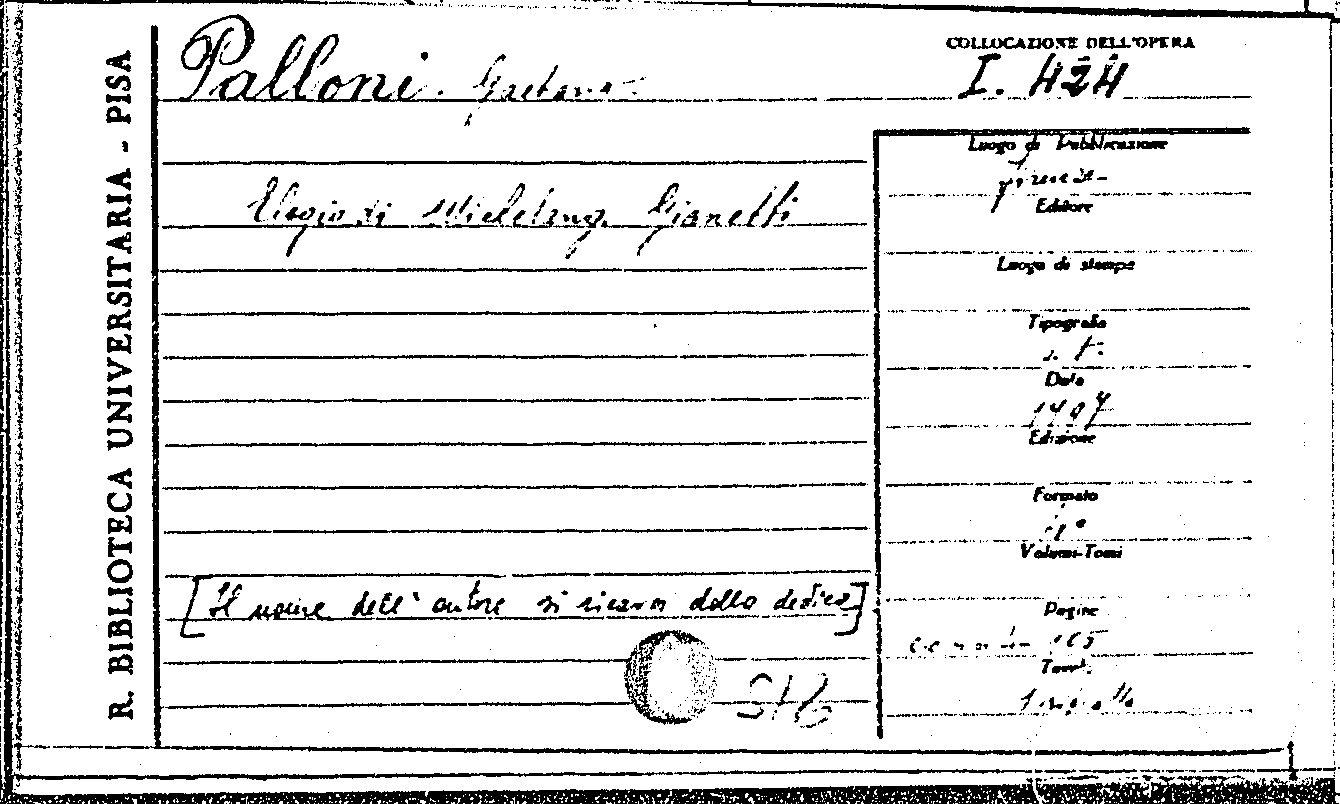 R. BIBLIOTECA UNIVERSITARIA - PISA
Palloni. Gaetano.
COLLOCAZIONE DELL'OPERA
I. 424
Elogio di Michelang. Gianetti
Luogo di Pubblicazione
Firenze
Editore
Luogo di stampa
Tipografia
s. t.
Data
1797
Edizione
Formato
Volumi-Tomi
Pagine
165
Tavole
[Il nome dell'autore si ricava dalla dedica]